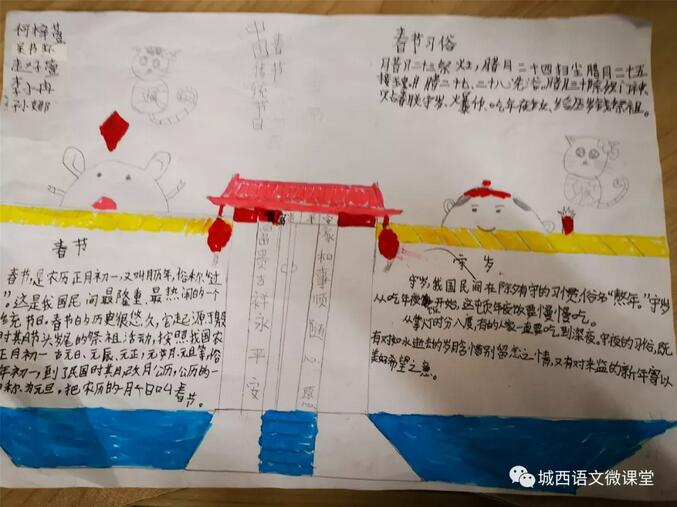 柯梓萱
孙娜
春节
中国传统节日
春节习俗
腊月二十三祭灶,腊月二十四扫尘腊月二十五
接玉皇,腊月二十七、二十八洗浴。腊月三十除夕门神
贴春联守岁、爆仲、吃年夜饭、给压岁钱祭祖。
春节
春节,是农历正月初一,又叫阴历年,俗称"过
"。这是我国民间最隆重、最热闹的一个
统节日。春节的历史很悠久,它起源于殷
时其月节头岁尾的祭祖活动,按照我国农
正月初一古元日、元辰、元正、元岁月、元旦等,俗
年初一,到了民国时其月,改月公历,公历的一
称为元旦,把农历的一月一日叫春节。
富贵吉祥永平安
家和事顺随心愿
守岁
守岁,我国民间在除夕有守的习惯,俗知"熬年。"守岁
从吃年夜饭开始,这屯顿年夜饭要慢慢吃。
从掌灯时分入席,有的人家一直要吃到深夜。守夜的习俗,既
有对如水逝去的岁月含惜别留恋之情,又有对来监的新年寄以
美好希望之意。
城西语文微课堂